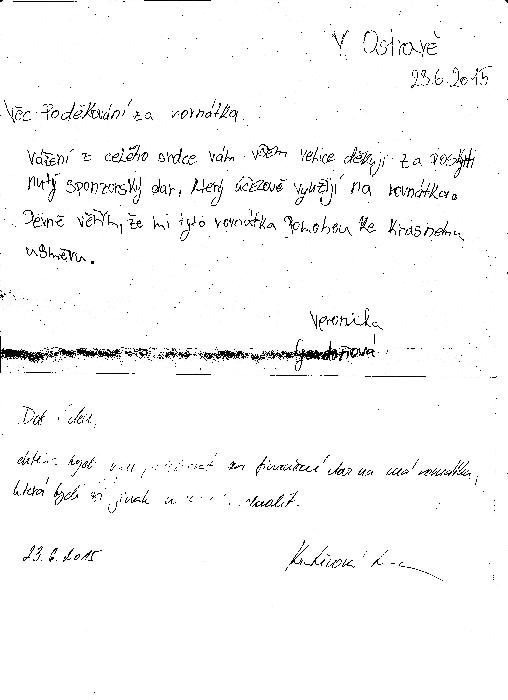 V Ostravě
23.6.2015
Věc Poděkování za rovnátka
Vážení z celého srdce vám všem velice děkuji za poskyt
nutý sponzorský dar, který účelově využiji na rovnátka.
Pevně věřím, že mi tyto rovnátka pomohou ke krásnému
usměvu.
Veronika
Dob den,
bych finanční dar na má rovnátka,
která bych si jinak
23.6.2015